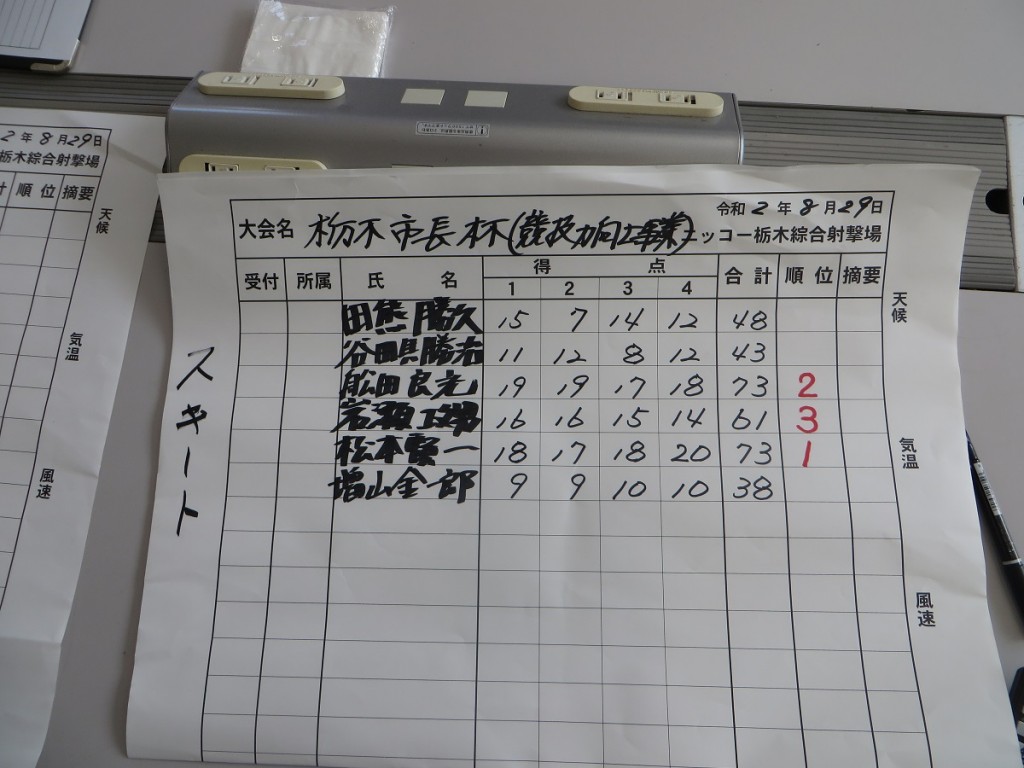 2年8月29日
栃木綜合射撃場
計 順位 摘要
天候
気温
風速
令和2年8月29日
大会名 栃木市長杯(競技力向上事業)ニッコー栃木綜合射撃場
受付 所属 氏名 得点 合計 順位 摘要
1 2 3 4
田熊勝久 15 7 14 12 48
谷田貝勝治 11 12 8 12 43
舩田良光 19 19 17 18 73 2
若瀬 16 16 15 14 61 3
松本賢一 18 17 18 20 73 1
増山金一郎 9 9 10 10 38
スキート
天候
気温
風速